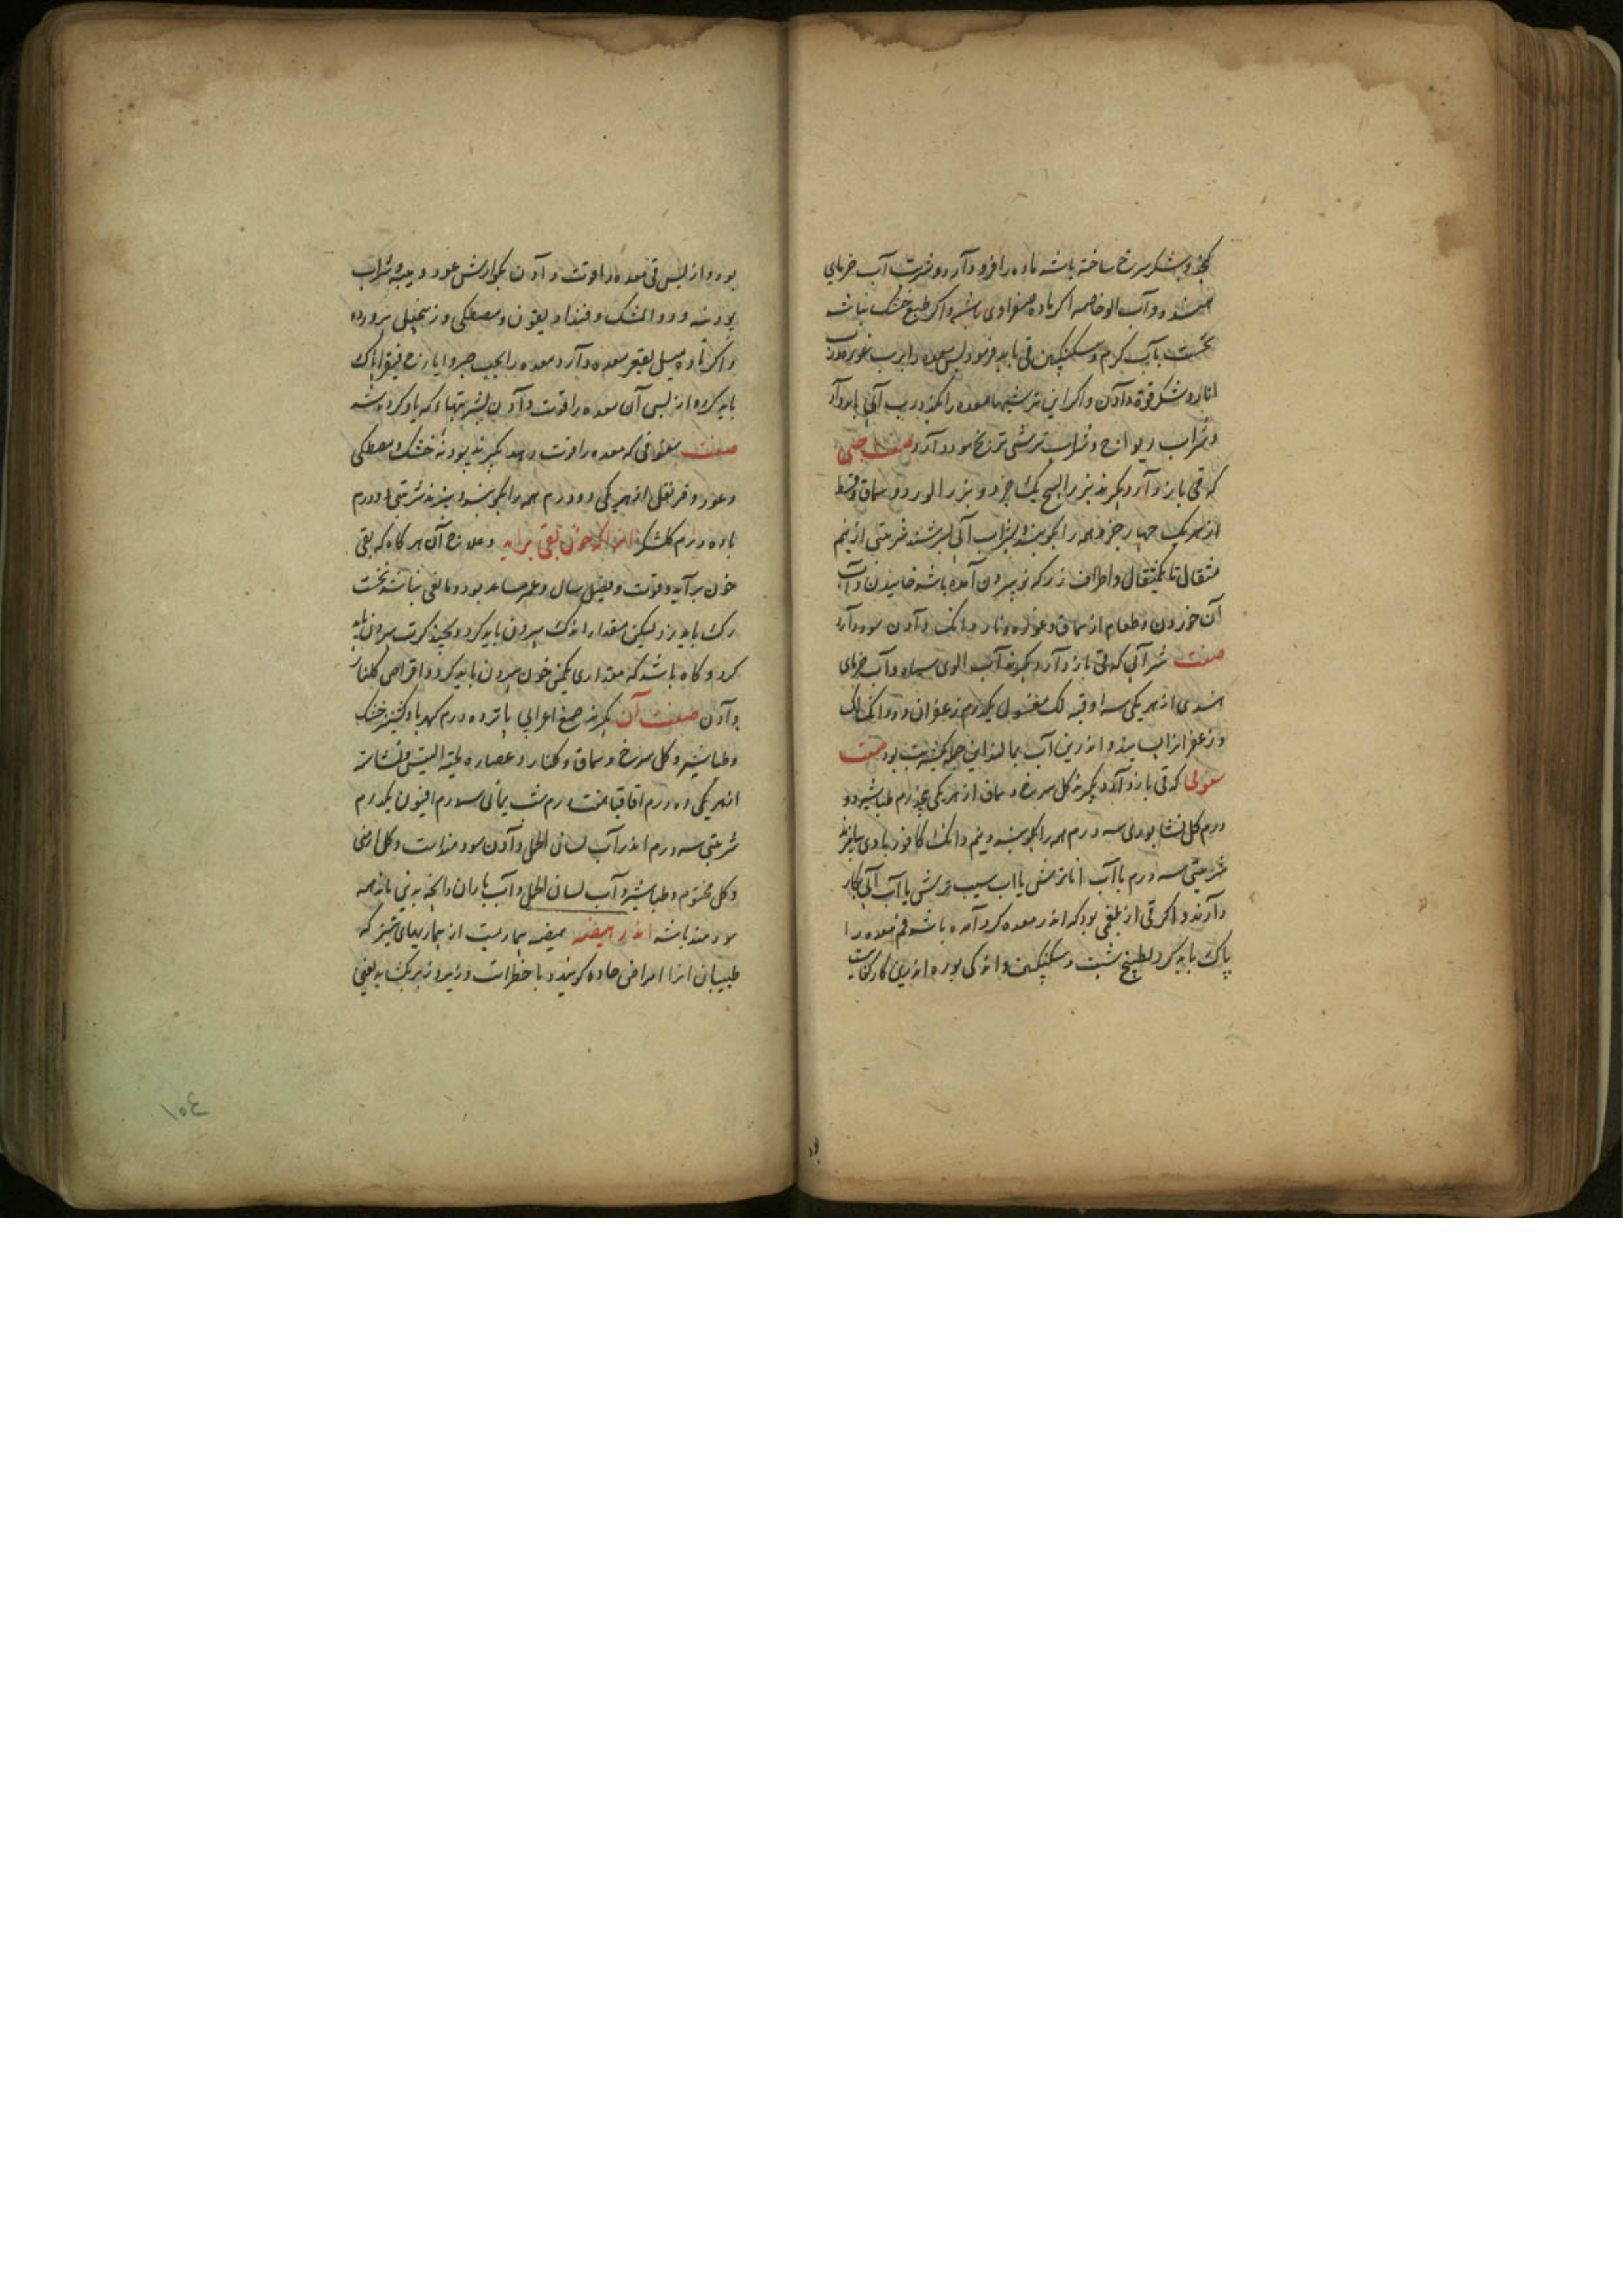 کنجد و شکر سرخ ساخته باشد ماده را فرود آرد و شربت آب خرمای
هند و آب الو خاصه اکر ماده صفراوی باشد و اکر طبع خشک نباشد
نخست بآب کرم و سکنکبین قی باید فرمود پس معده را برب غوره و رب
انار و شکر قوة دادن و اکر این ترشیها معده را بکزد رب آبی باید داد
و شراب ریواج و شراب ترشی ترنج سود دارد صفت حبی
که قی باز دارد بکیرند بزر البنج یک جزو و بزر الورد و سماق و قسط
از هر یک چهار جزو همه را بکوبند و بشراب آبی بسرشند شربتی از نیم
مثقال تا یکمثقال و اطراف رز که نو بیرون آمده باشد خاییدن و آب
آن خوردن و طعام از سماق و غوره و نار دانک دادن سود دارد
صفت شرابی که قی باز دارد بکیرند آب الوی سیاه و آب خرمای
هندی از هر یکی سه اوقیه لک مغسول یکدرم زعفران دو دانک لک
و زعفران بسایند و اندرین آب بمالند این جمله یک شربت بود صفت
سفوفی که قی باز دارد بکیرند کل سرخ و سماق از هر یکی پنج درم طباشیر دو
درم کل نشابوری سه درم همه را بکوبند و نیم دانک کافور با وی بیامیزند
شربتی سه درم با آب انار ترش یا اب سیب ترش یا آب آبی بکار
دارند و اکر قی از بلغمی بود که اندر معده کرد آمده باشد فم معده را
پاک باید کرد بطبیخ شبت و سکنکبین و اندکی بوره اندرین کار کفایت
بود
بود و از پس قی معده را قوت دادن بکوارش عود و میبه و شراب
پودنه و دواء المشک و قنداریقون و مصطکی و زنجبیل پرورده
و اکر ماده میل بقعر معده دارد معده را بحب صبر و ایارج فیقرا پاک
باید کرد و از پس آن معده را قوت دادن بشربتها که یاد کرده شد
صفت سفوفی که معده را قوت دهد بکیرند پودنه خشک و مصطکی
و عود و قرنفل از هر یکی دو درم همه را بکوبند و بپزند شربتی دو درم
با ده درم کلشکر اندر انکه خون بقی برآید و علاج آن هر کاه که بقی
خون برآید و قوت و فصل سال و عمر مساعد بود و مانعی نباشد نخست
رک باید زد لیکن مقدار اندک بیرون باید کرد و بچند کرت بیرون باید
کرد و کاه باشد که مقداری یکمنی خون بیرون باید کرد و اقراص کلنار
دادن صفت آن بکیرند صمغ اعرابی پانزده درم کهربا و کشنیز خشک
و طباشیر و کل سرخ و سماق و کلنار و عصاره لحیة التیس و نشاسته
از هر یکی ده درم اقاقیا هفت درم شب یمانی سه درم افیون یکدرم
شربتی سه درم اندر آب لسان الحمل دادن سودمند است و کل ارمنی
و کل مختوم و طباشیر و آب لسان الحمل و آب باران و آنچه بدین ماند همه
سودمند باشد اندر هیضه هیضه بیماریست از بیماریهای تیز که
طبیبان انرا امراض حاده کویند و با خطرات و زود بکشاید یعنی
١٥٤